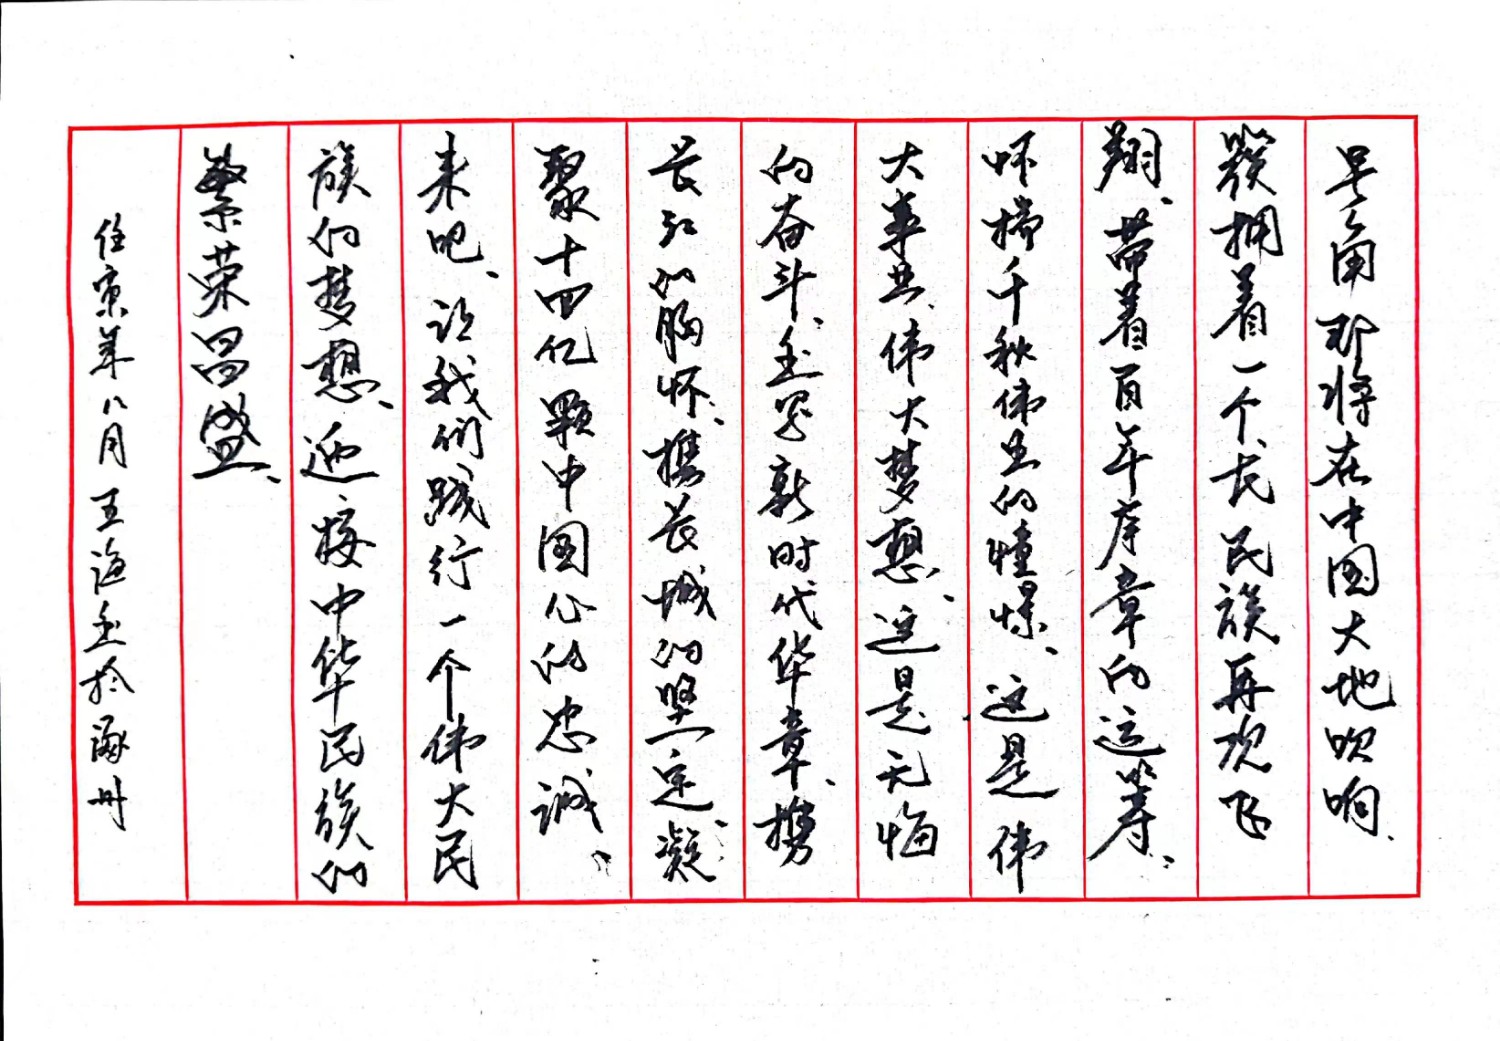 号角即将在中国大地吹响、
簇拥着一个长民族再次飞
翔、带着百年序章的运筹、
怀揣千秋伟业的憧憬、这是伟
大事业、伟大梦想、这是无悔
的奋斗、书写新时代华章、携
长江的胸怀、携长城的坚定、凝
聚十四亿颗中国心的忠诚、
来吧、让我们践行一个伟大民
族的梦想、迎接中华民族的
繁荣昌盛、
壬寅年八月王海玉于涿州